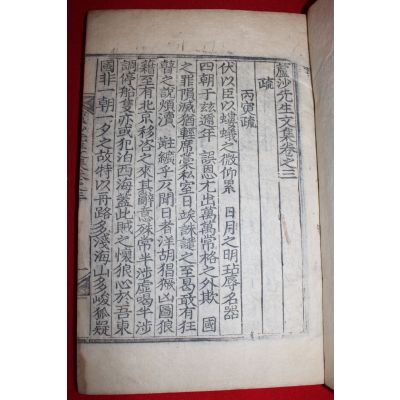 蘆沙先生文集卷之三
疏
丙寅疏
伏以臣以螻蟻之微仰累 日月之明玷辱名器
四朝于玆邇年 誤恩尤出萬萬常格之外欺 國
之罪隕滅猶輕席藁私室日竢誅譴之至曷敢有狂
瞽之說煩瀆 黈纊乎乃聞日者洋胡猖獗凶圖狼
藉至有北京移咨之來其辭意殊常半涉虛喝半涉
調停船隻亦或犯泊西海蓋此賊之懷狼心於吾東
國非一朝一夕之故特以再路多淺海山多峻狐疑